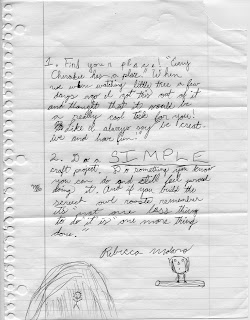 1. Find your place! "Every
Cherokee has a place." When
we were watching little tree a few
days ago I got this out of it
and thought that it would be
a really cool tek for you!
Like I always say be creat-
ive and have fun!
2. Do a SIMPLE
craft project. Do something you know
you can do and still feel proud
doing it. And if you build the
screech owl roosts, remember
it's just one less thing
to do "is" one more thing
done."
Rebecca Molano